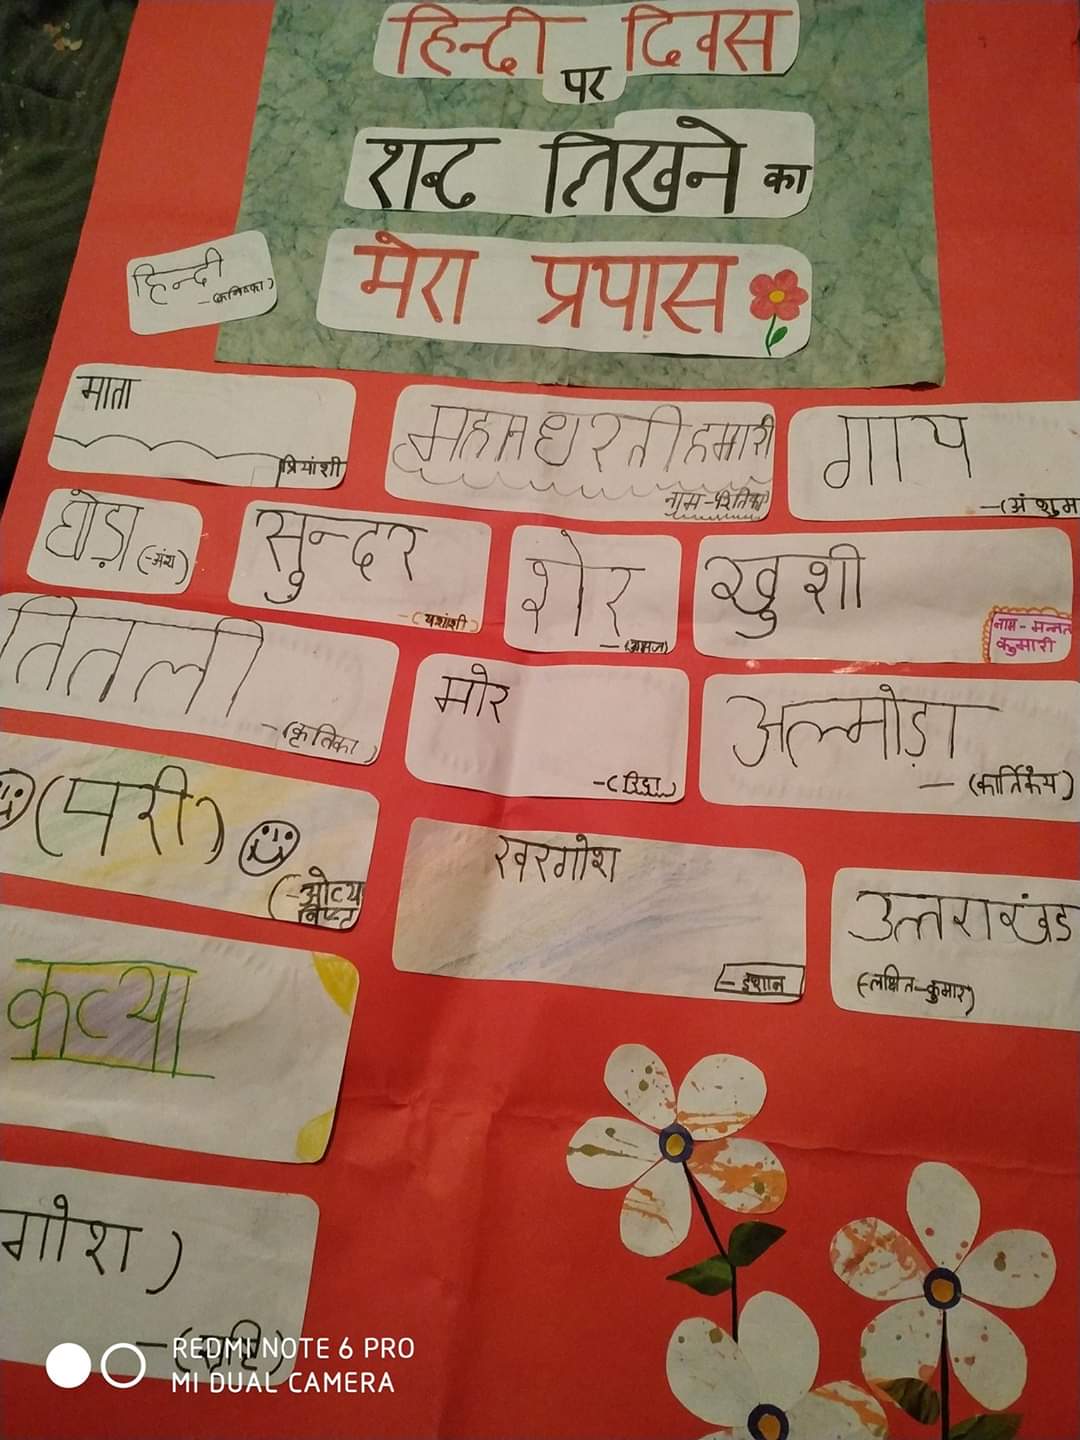 हिन्दी दिवस
पर
शब्द लिखने का
मेरा प्रयास
हिन्दी
-(कनिष्का)
माता
प्रियांशी
महान धरती हमारी
नाम -
गाय
-(अंशुम
घोड़ा (-अंश)
सुन्दर
-(यशांशी)
शेर
खुशी
नाम - मन्नत
कुमारी
तितली
-(कृतिका)
मोर
-(रिद्धा)
अल्मोड़ा
-(कार्तिकेय)
(परी)
खरगोश
- इशान
उत्तराखंड
(-लक्षित-कुमार)
कत्या
गोश)
REDMI NOTE 6 PRO
MI DUAL CAMERA